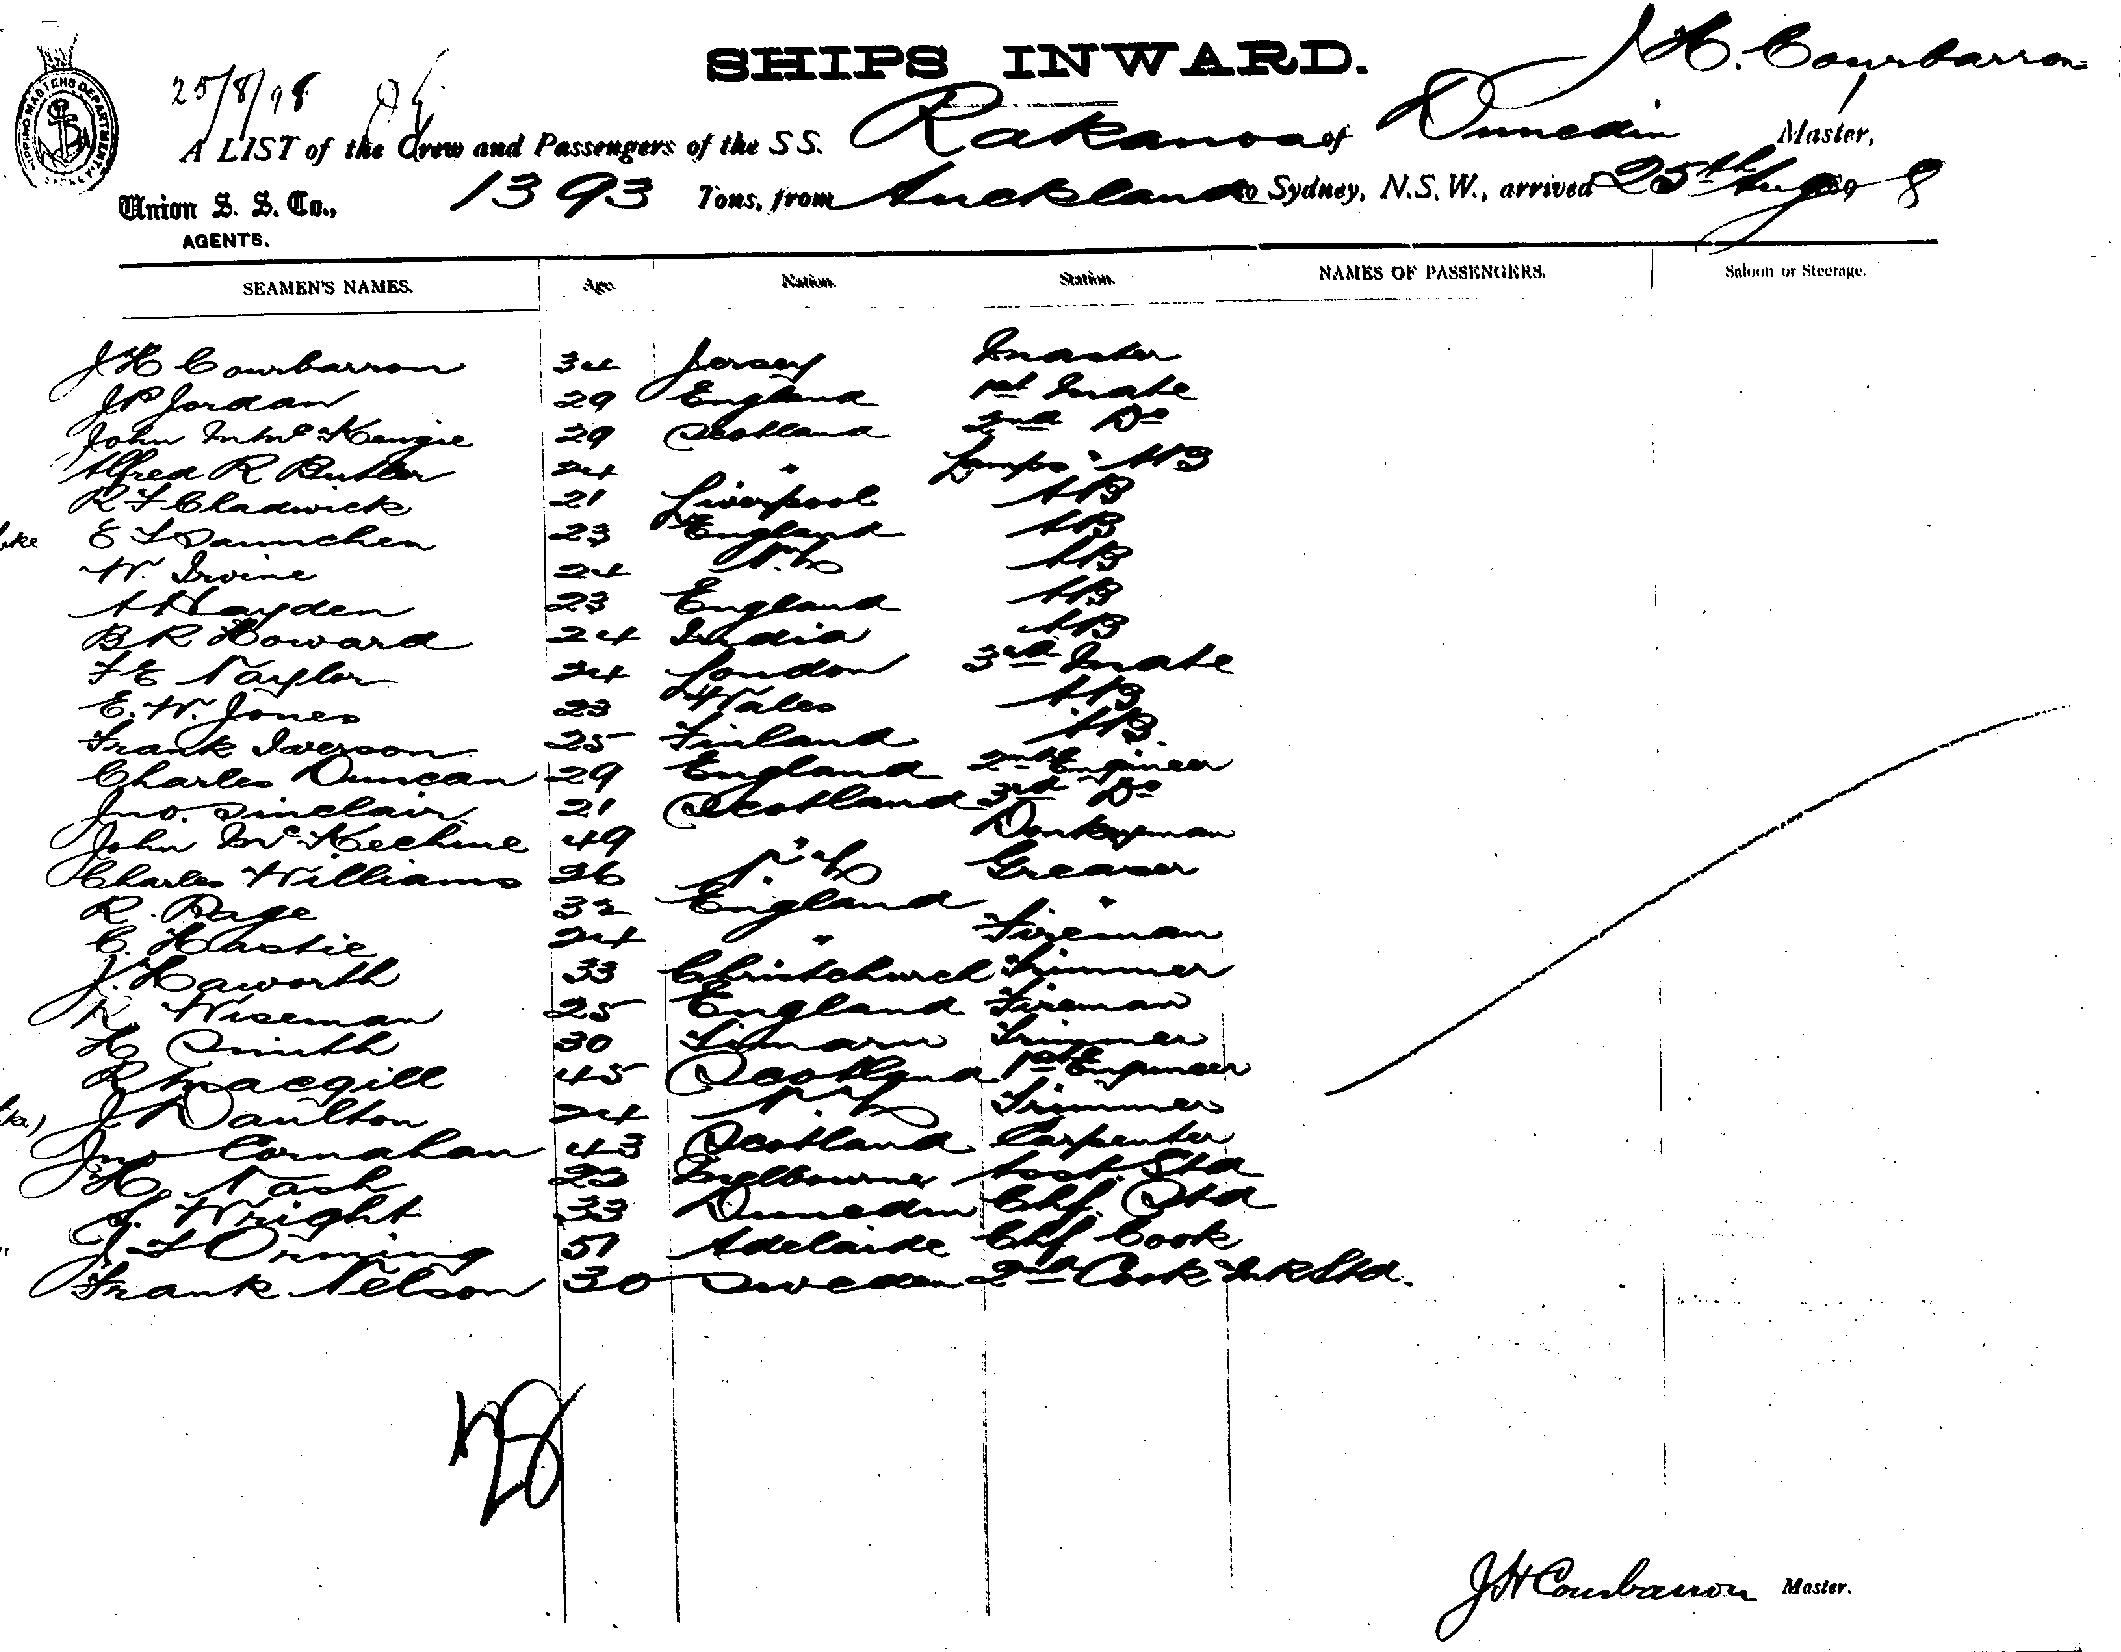 SHIPS INWARD.
J H. Courbarron
25/8/98
A LIST of the Crew and Passengers of the S S. Rakanoa of Dunedin Master,
Union S. S. Co., 1393 Tons, from Auckland to Sydney, N.S.W., arrived 25th Aug 189 8
AGENTS.
SEAMEN'S NAMES. Age Nation. Station. NAMES OF PASSENGERS. Saloon or Steerage.
J H Courbarron 34 Jersey Master
J P Jordan 29 England 1st Mate
John McKenzie 29 Scotland 2nd Do
Alfred R Butler 24 " Lamps & AB
R F Chadwick 21 Liverpool AB
E 23 England AB
W. Irvine 24 N.Z AB
A Hayden 23 England AB
B R Howard 24 India AB
F E Naylor 24 London 3rd Mate
E. W. Jones 23 Wales AB
Frank Iverson 25 Finland AB.
Charles Duncan 29 England 2nd Engineer
Jno. Sinclair 21 Scotland 3rd Do
John McKechnie 49 " Donkeyman
Charles Williams 26 N.Z Greaser
R. Page 32 England "
C. Hastie 24 " Fireman
J. Haworth 33 Christchurch Trimmer
R Wiseman 25 England Fireman
H Smith 30 Timaru Trimmer
R Macgill 45 Scotland 1st Engineer
J Daulton 24 N.Z Trimmer
Jno Cornahan 43 Scotland Carpenter
H. Nash 23 Melbourne Asst. Std
J. Wright 33 Dunedin Chf. Std
J F Orming 51 Adelaide Chf Cook
Frank Nelson 30 Sweden 2nd Cook Std.
28
J H Courbarron Master.